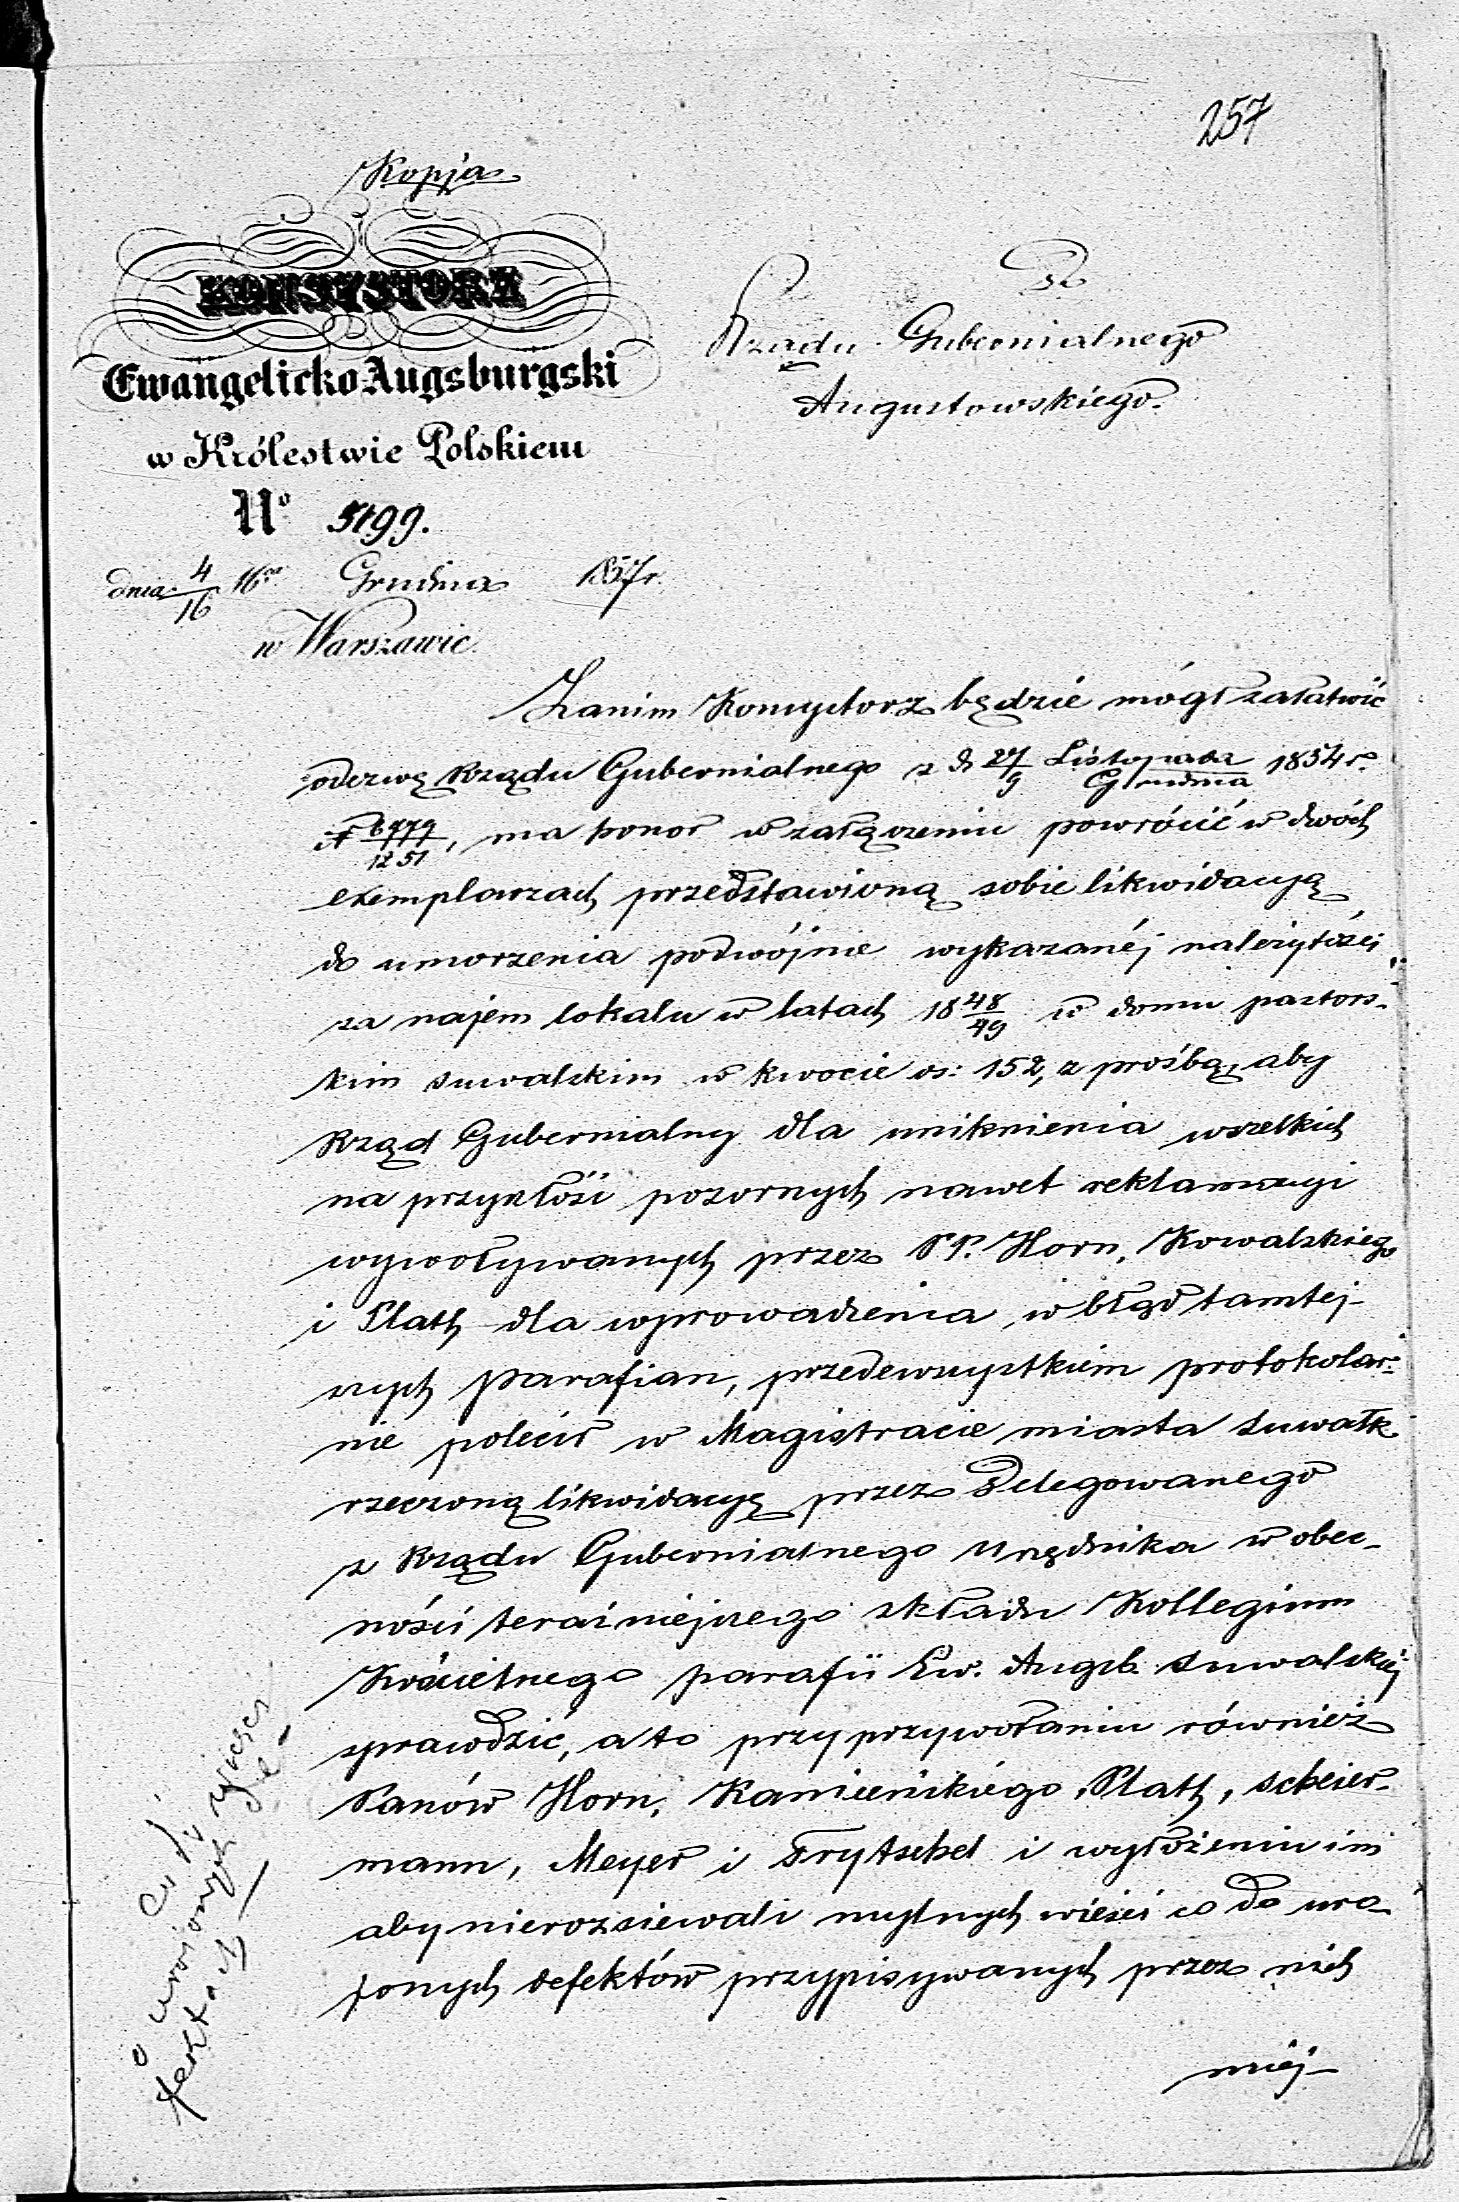 257
Kopja
KONSYSTORZ
Ewangelicko Augsburgski
w Królestwie Polskiem
No 5199.
dnia 4/16 16go Grudnia 1857 r.
w Warszawie.
Do
Rządu Gubernialnego
Augustowskiego.
Zanim Konsystorz będzie mógł załatwić
odezwę Rządu Gubernialnego z d 27/9 Listopada/Grudnia 1854 r.
N 6479/1251, ma honor w załączeniu powrócić w dwóch
exemplarzach przedstawioną sobie likwidacyą
do umorzenia podwójnie wykazanéj należytości
za najem lokalu w latach 1848/49 w domu pastors-
kim suwalskim w kwocie rs: 152, z prośbą, aby
Rząd Gubernialny dla uniknienia wszelkich
na przyszłość pozornych nawet reklamacyi
wywoływanych przez PP. Horn, Kowalskiego
i Plath dla wprowadzenia w błąd tamtej-
szych parafian, przedewszystkiem protokolar-
nie polecił w Magistracie miasta Suwałk
rzeczoną likwidacyę przez delegowanego
z Rządu Gubernialnego Urzędnika w obec-
ności teraźniejszego składu Kollegium
Kościelnego parafii Ew. Augsb. Suwalskiej
sprawdzić, a to przy przywołaniu również
Panów Horn, Kamieńskiego, Plath, Scheier-
mann, Meyer i Frytschel i wyłożeniu im
aby nierozsiewali mylnych wieści co do uro-
jonych defektów przypisywanych przez nich
miej-
o urojonych